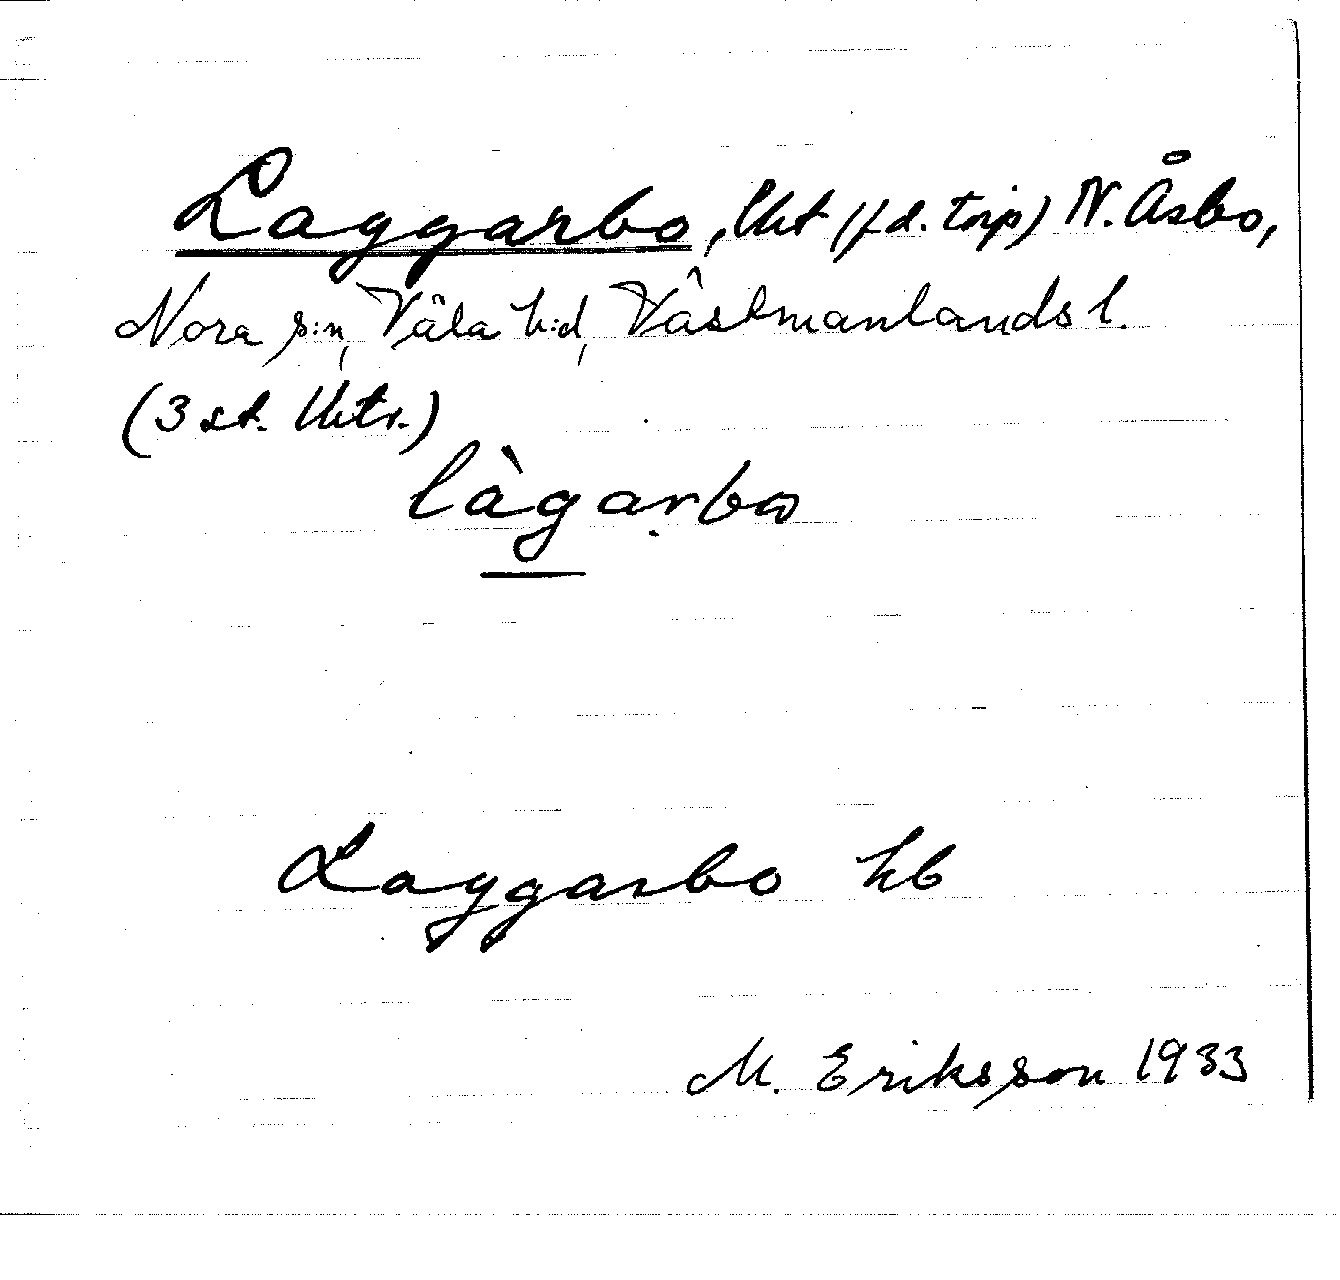 Laggarbo, lht (f.d. torp) N. Åsbo,
Nora s:n, Våla h:d, Västmanlands l.
(3 st. lhtr.)
làgarbo
Laggarbo hb
M. Eriksson 1933